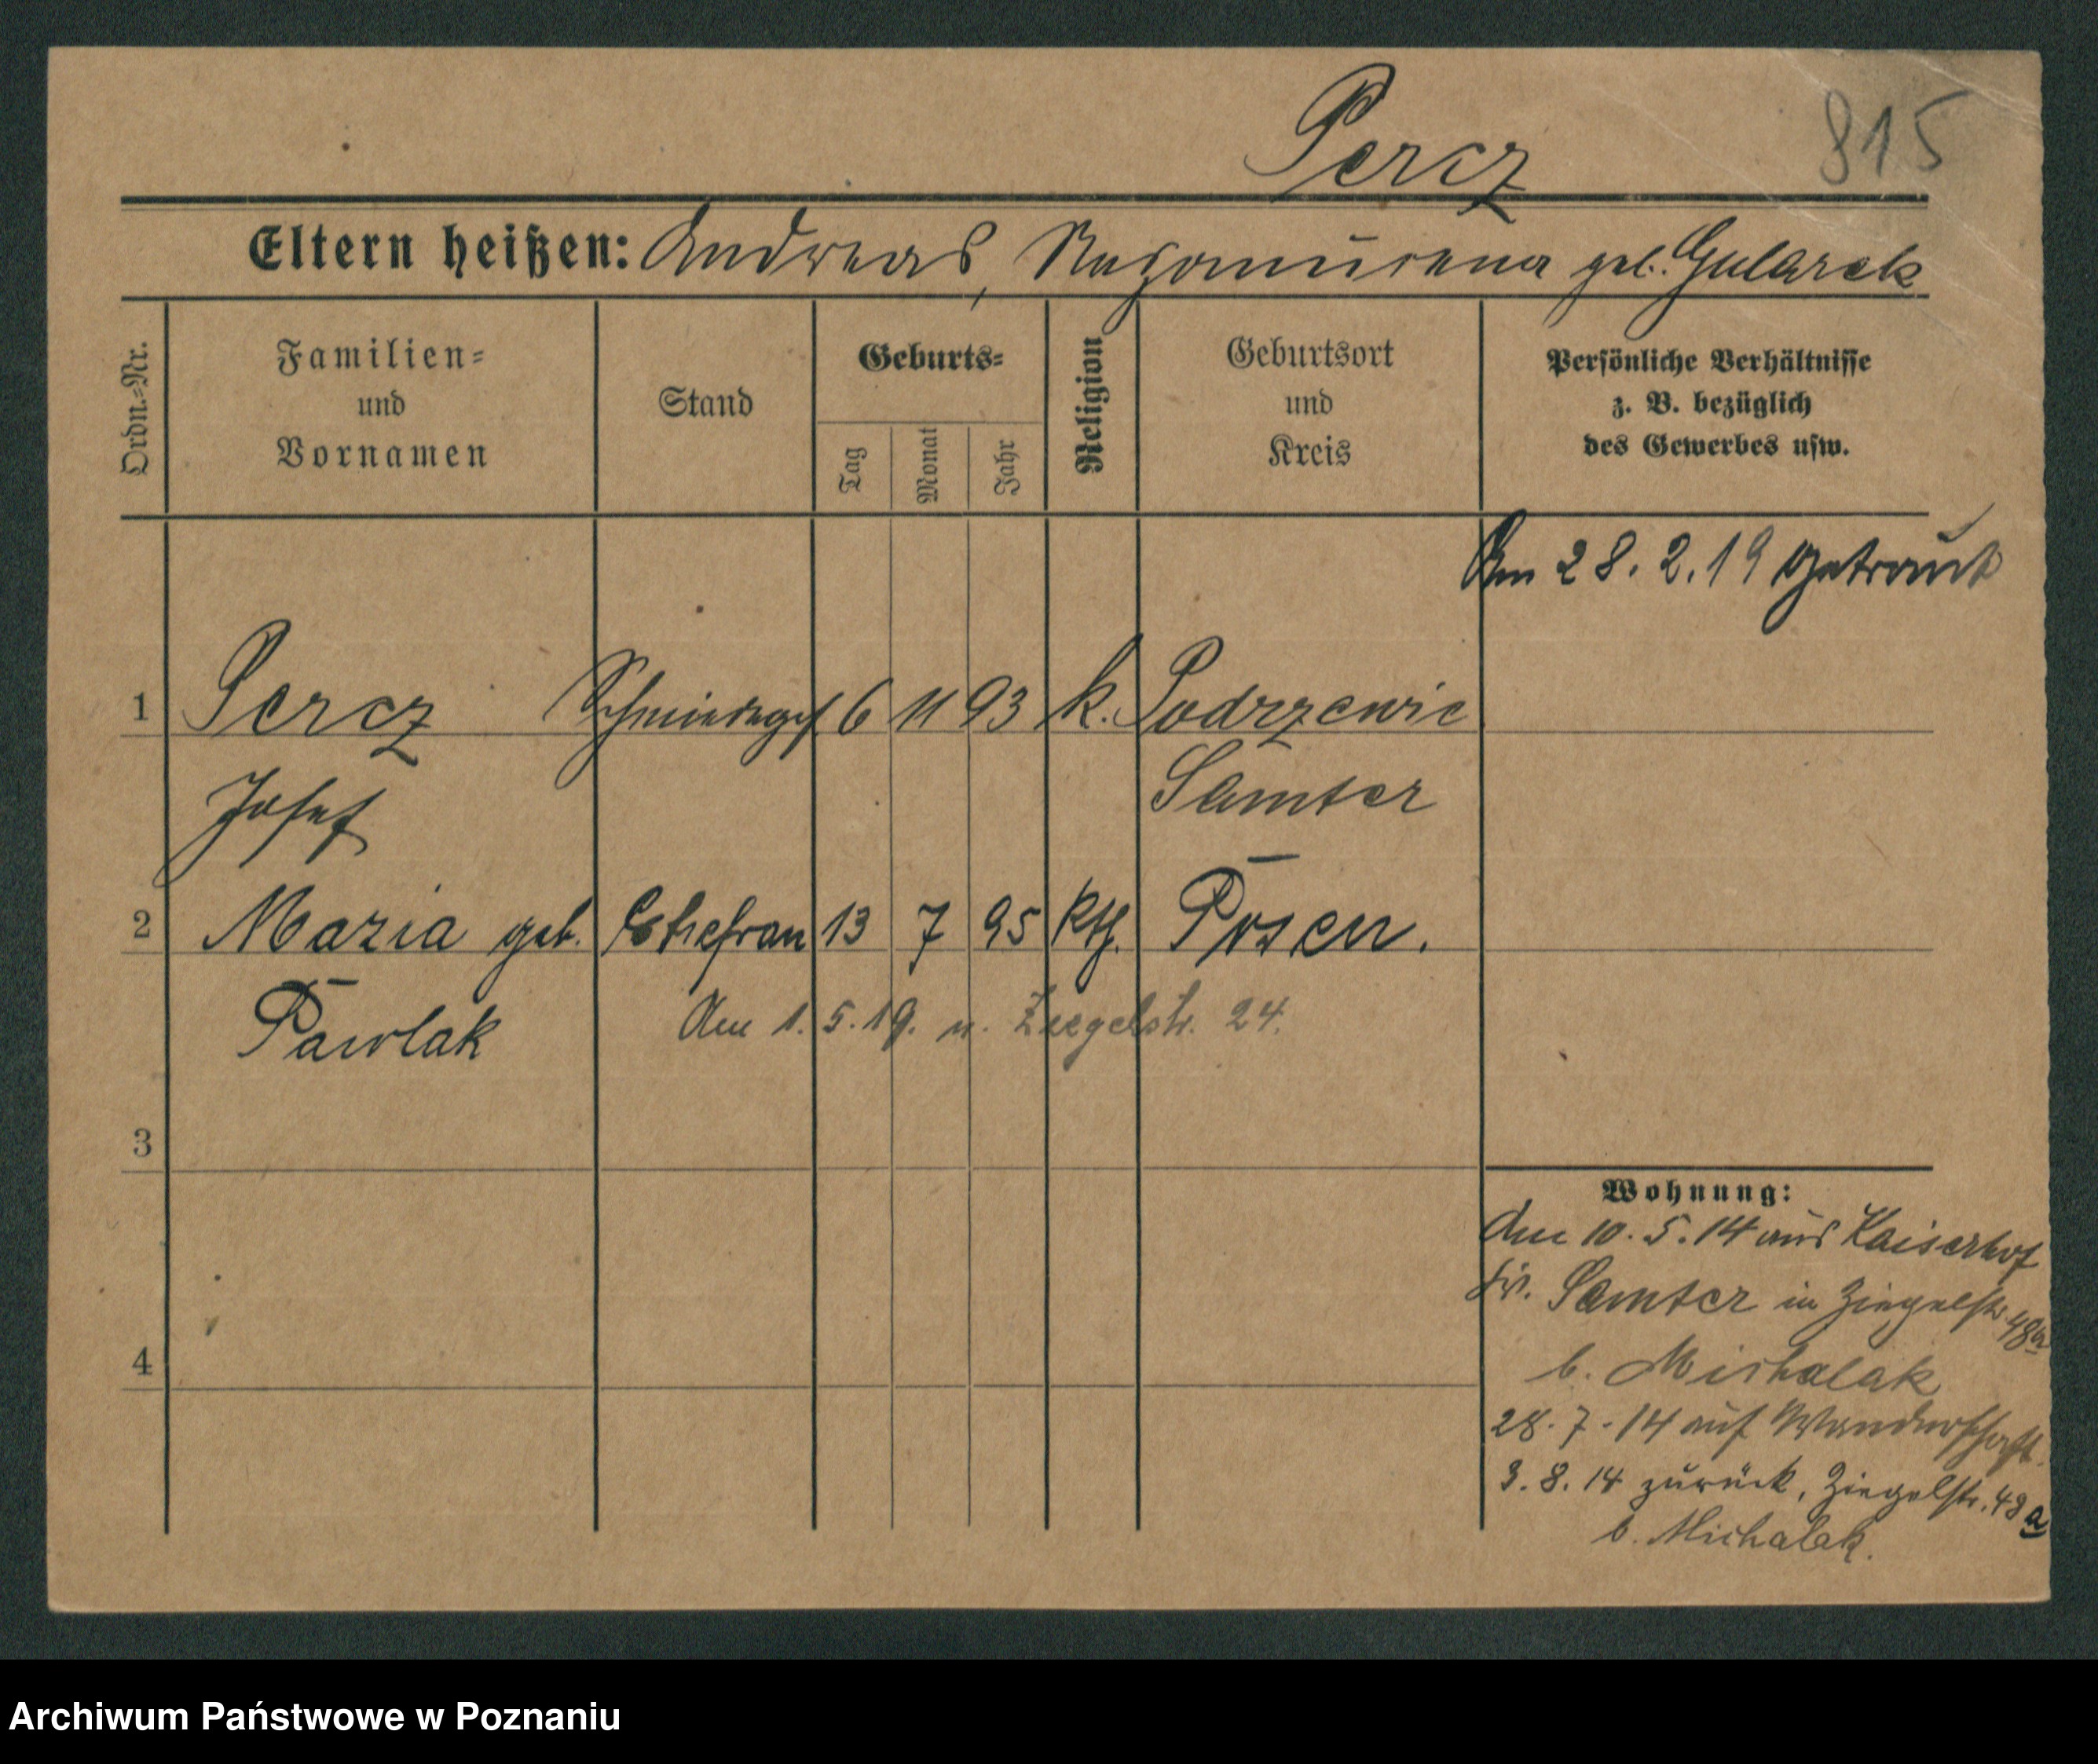 Percz
815
Eltern heißen: Andreas, Nepomucena geb. Gularek
Ordn.=Nr.
Familien=
und
Vornamen
Stand
Geburts=
Tag
Monat
Jahr
Religion
Geburtsort
und
Kreis
Persönliche Verhältnisse
z. B. bezüglich
des Gewerbes usw.
Am 28. 2. 19 getraut
1 Percz Schmiedeges 6 11 93 k. Podrzewie
Josef Samter
2 Maria geb. Ehefrau 13 7 95 kth. Posen.
Pawlak Am 1. 5. 19. n. Ziegelstr. 24.
3
4
Wohnung:
Am 10. 5. 14 aus Kaiserhof
Kr. Samter in Ziegelstr. 48a
b. Michalak
28. 7. 14 auf Wanderschaft.
3. 8. 14 zurück, Ziegelstr. 48a
b. Michalak.
Archiwum Państwowe w Poznaniu